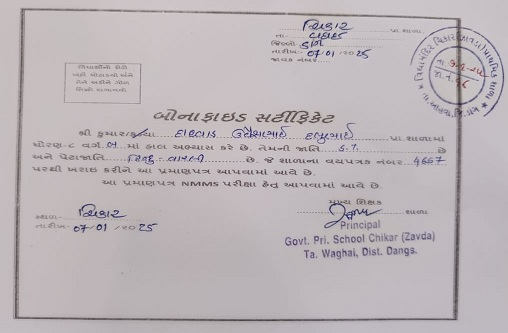 ચિકાર પ્રા.શાળા.
તા- વઘઈ
જિલ્લો- ડાંગ
તારીખ- 07-01 /2025
જાવક નંબર
વિદ્યાર્થીનો ફોટો
અહીં ચોંટાડવો અને
તેને આવરીને ગોળ
સિક્કો લગાવવો
બોનાફાઇડ સર્ટીફિકેટ
શ્રી કુમાર/કન્યા ઉમેશભાઈ પ્રા.શાળામાં
ધોરણ-૮ વર્ગ માં હાલ અભ્યાસ કરે છે. તેમની જાતિ S.T. છે
અને પેટાજાતિ હિન્દુ- છે. જે શાળાના વયપત્રક નંબર 4667
પરથી ખરાઇ કરીને આ પ્રમાણપત્ર આપવામાં આવે છે.
આ પ્રમાણપત્ર NMMS પરીક્ષા હેતુ આપવામાં આવે છે.
મુખ્ય શિક્ષક
સ્થળ- ચિકાર
શાળા
તારીખ- 07-01 /2025
Principal
Govt. Pri. School Chikar (Zavda)
Ta. Waghai, Dist. Dangs.